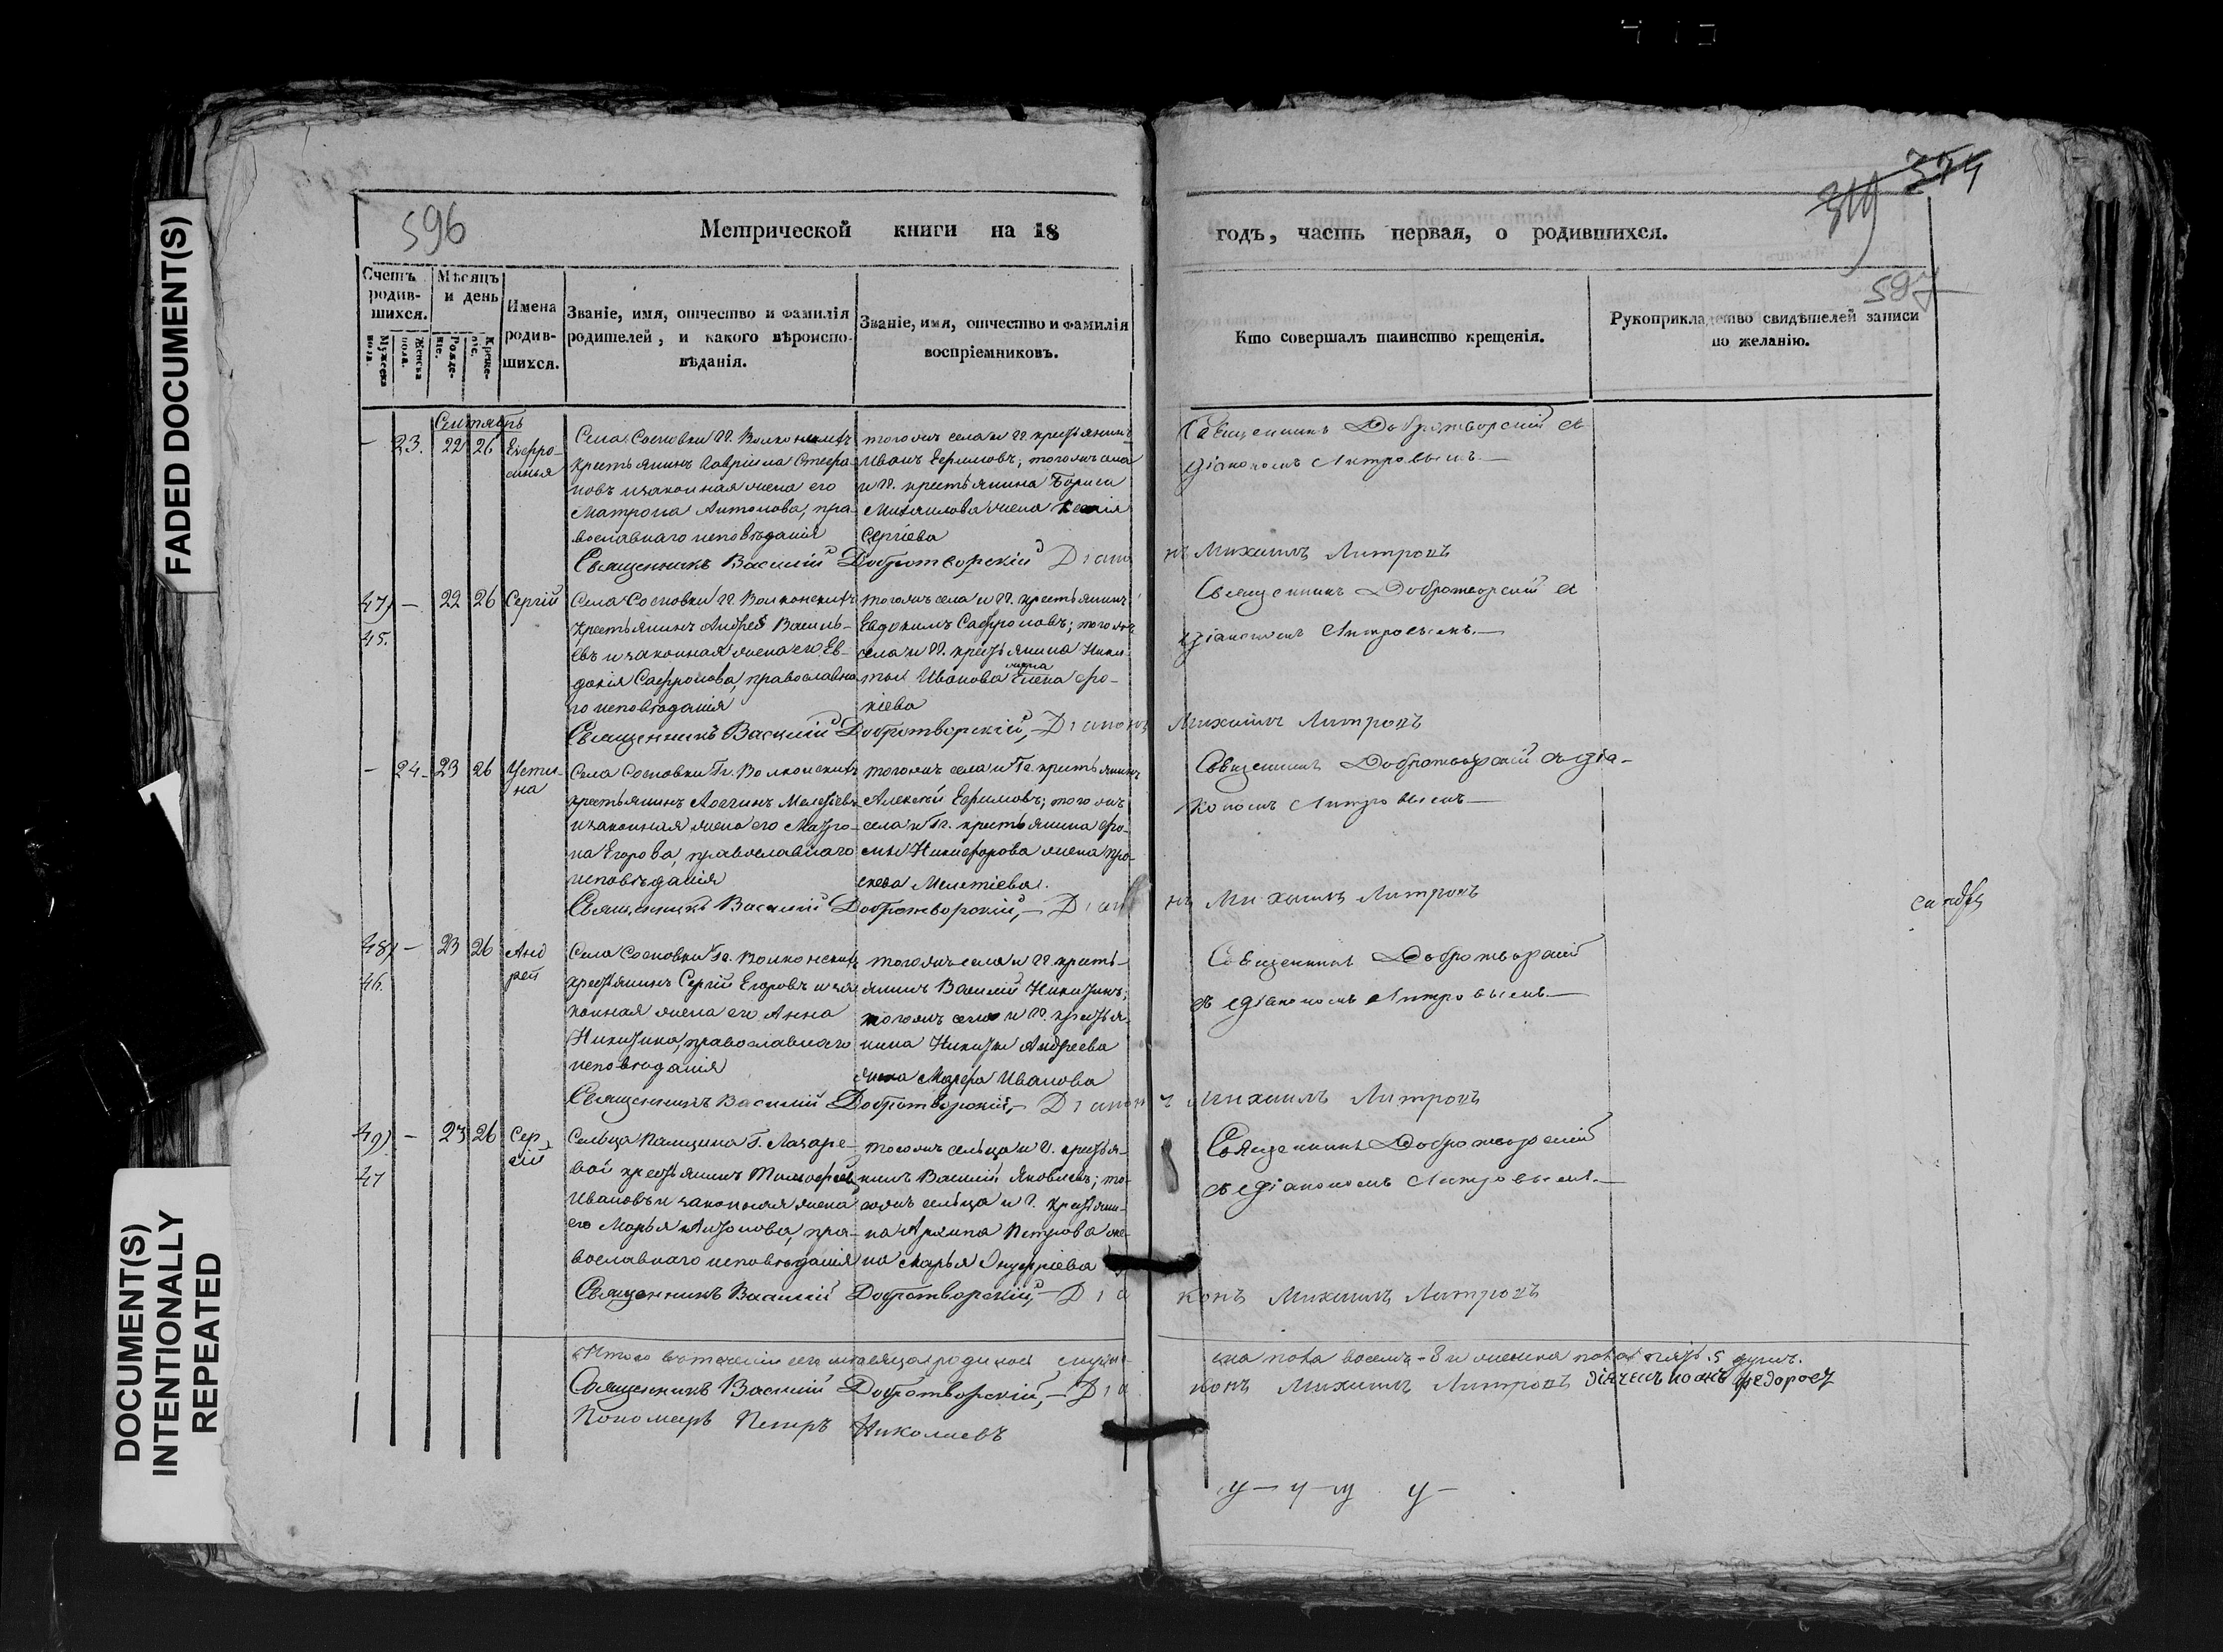 FADED DOCUMENT(S)
DOCUMENT(S)
INTENTIONALLY
REPEATED
596
Метрической книги на 18
годъ, часть первая, о родившихся.
374
319
597
Счетъ родив-
шихся.
Мужеска пола.
Женска пола.
Мѣсяцъ
и день
Рожде-
нія.
Креще-
нія.
Имена
родив-
шихся.
Званіе, имя, отчество и фамилія
родителей, и какого вѣроиспо-
вѣданія.
Званіе, имя, отчество и фамилія
воспріемниковъ.
Кто совершалъ таинство крещенія.
Рукоприкладство свидѣтелей записи
по желанію.
Сентябрь
— 23. 22 26 Евфро-
синья
Села Сосновки гг. Волконскихъ
крестьянинъ Гавріила Стефа-
новъ и законная жена его
Матрона Антонова, пра-
вославнаго исповѣданія
тогожъ села и гг. крестьянинъ
Иванъ Ефимовъ; тогожъ села
и гг. крестьянина Бориса
Михаилова жена Ксенія
Сергіева
Священникъ Добротворскій съ
діакономъ Митровымъ.—
Священникъ Василій Добротворскій Діаконъ Михаилъ Митровъ
47) — 22 26 Сергій
45.
Села Сосновки гг. Волконскихъ
крестьянинъ Андрей Василь-
евъ и законная жена его Ев-
докія Сафронова, православна-
го исповѣданія
тогожъ села и гг. крестьянинъ
Евдокимъ Сафроновъ; тогожъ
села и гг. крестьянина Ники-
ты Иванова жена Елена Фо-
кіева
Священникъ Добротворскій съ
діакономъ Митровымъ.—
Священникъ Василій Добротворскій, Діаконъ Михаилъ Митровъ
— 24. 23 26 Усти-
на
Села Сосновки Гг. Волконскихъ
крестьянинъ Логгинъ Мелетіевъ
и законная жена его Матро-
на Егорова, православнаго
исповѣданія
тогожъ села и Гг. крестьянинъ
Алексѣй Ефимовъ; тогожъ
села и Гг. крестьянина Фо-
мы Никифорова жена Пра-
скева Мелетіева.
Священникъ Добротворскій съ діа-
кономъ Митровымъ—
Священникъ Василій Добротворскій,— Діаконъ Михаилъ Митровъ
48) — 23 26 Анд
рей
46.
Села Сосновки Гг. Волконскихъ
крестьянинъ Сергій Егоровъ и за-
конная жена его Анна
Никитина, православнаго
исповѣданія
тогожъ села и гг. кресть-
янинъ Василій Никитинъ;
тогожъ села и гг. крестья-
нина Никиты Андреева
жена Марфа Иванова
Священникъ Добротворскій
съ діакономъ Митровымъ.—
Священникъ Василій Добротворскій,— Діаконъ Михаилъ Митровъ
49) — 23 26 Сер
гій
47
Сельца Г. Лазаре-
вой крестьянинъ Тимофей
Ивановъ и законная жена
его Марья Антонова, пра-
вославнаго исповѣданія
тогожъ сельца и г. крестья-
нинъ Василій Яковлевъ; то-
гожъ сельца и г. крестьяни-
на Архипа Петрова же-
на Марья Онуфріева
Священникъ Добротворскій
съ діакономъ Митровымъ.—
Священникъ Василій Добротворскій,— Діаконъ Михаилъ Митровъ
Итого въ теченіи сего мѣсяца родилось мужеска пола восемь – 8 и женска пола пять. 5 душъ.
Священникъ Василій Добротворскій,— Діаконъ Михаилъ Митровъ діячекъ иоанъ федоровъ
Пономарь Петръ Николаевъ